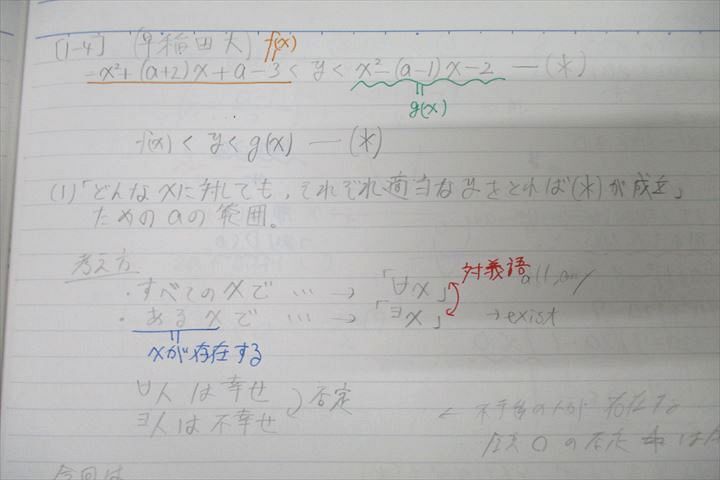 [1-4] (早稲田大) f(x)
-x²+(a+2)x+a-3 < y < x²-(a-1)x-2 —(*)
g(x)
f(x) < y < g(x) —(*)
(1)「どんなxに対しても、それぞれ適当なyをとれば(*)が成立」
ためのaの範囲。
考え方 対義語
・すべてのxで … → 「∀x」 all, any
・あるxで … → 「∃x」 → exist
xが存在する
∀人は幸せ
∃人は不幸せ 否定
今回は